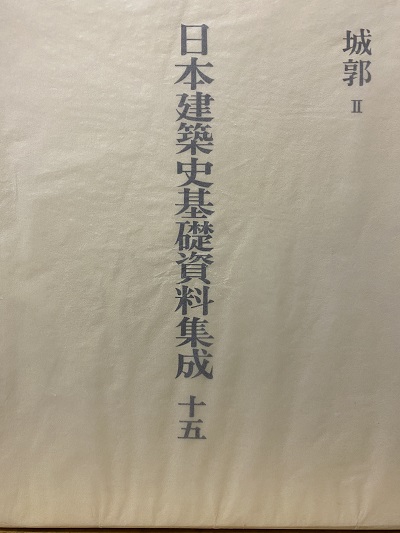 城郭 II
日本建築史基礎資料集成 十五